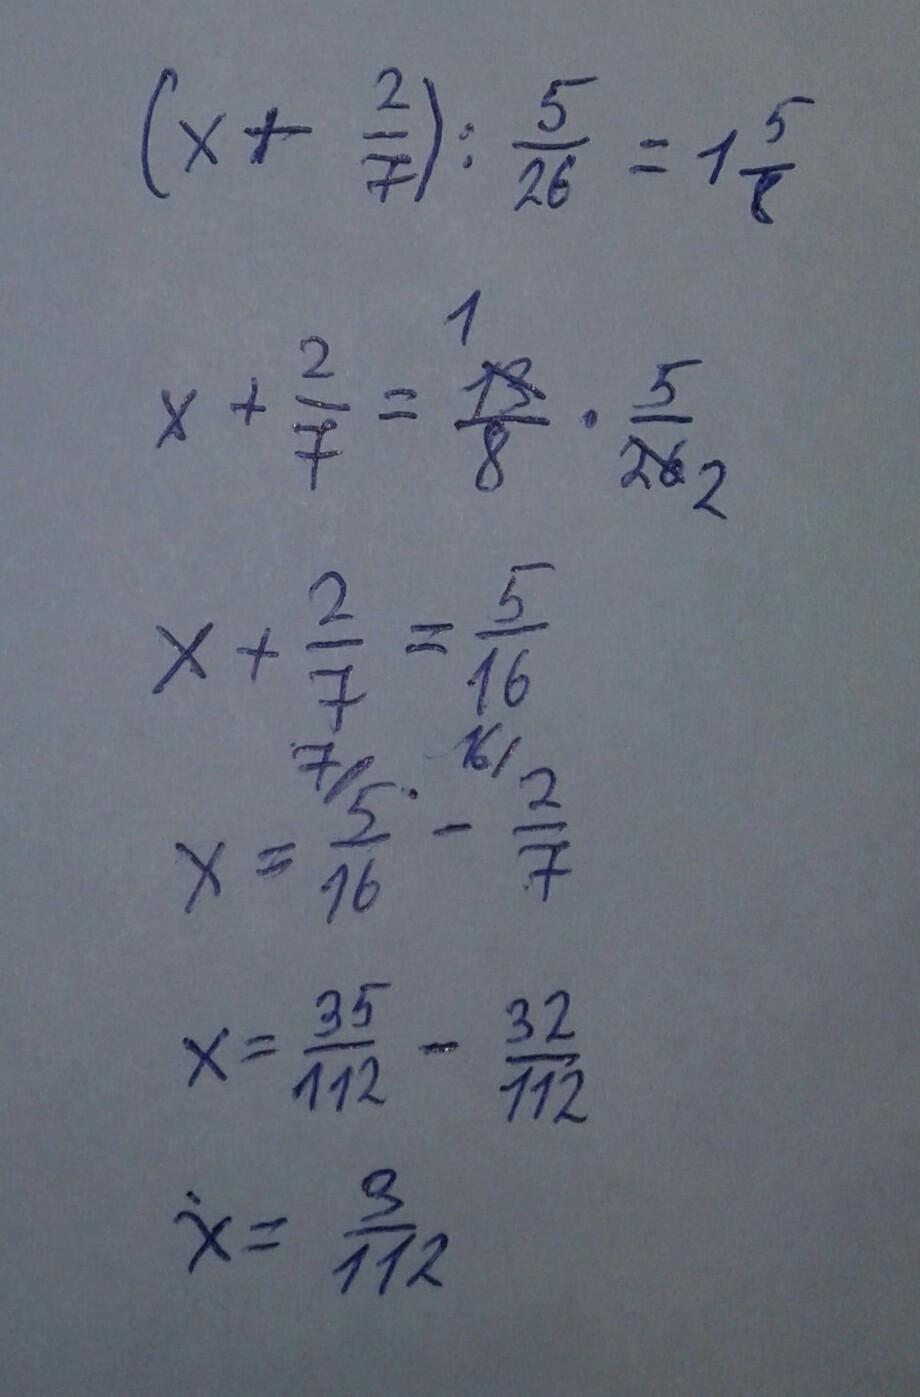 (x + 2/7) : 5/26 = 1 5/8
1
x + 2/7 = 13/8 · 5/26 2
x + 2/7 = 5/16
7/ 16/
x = 5/16 - 2/7
x = 35/112 - 32/112
x = 3/112